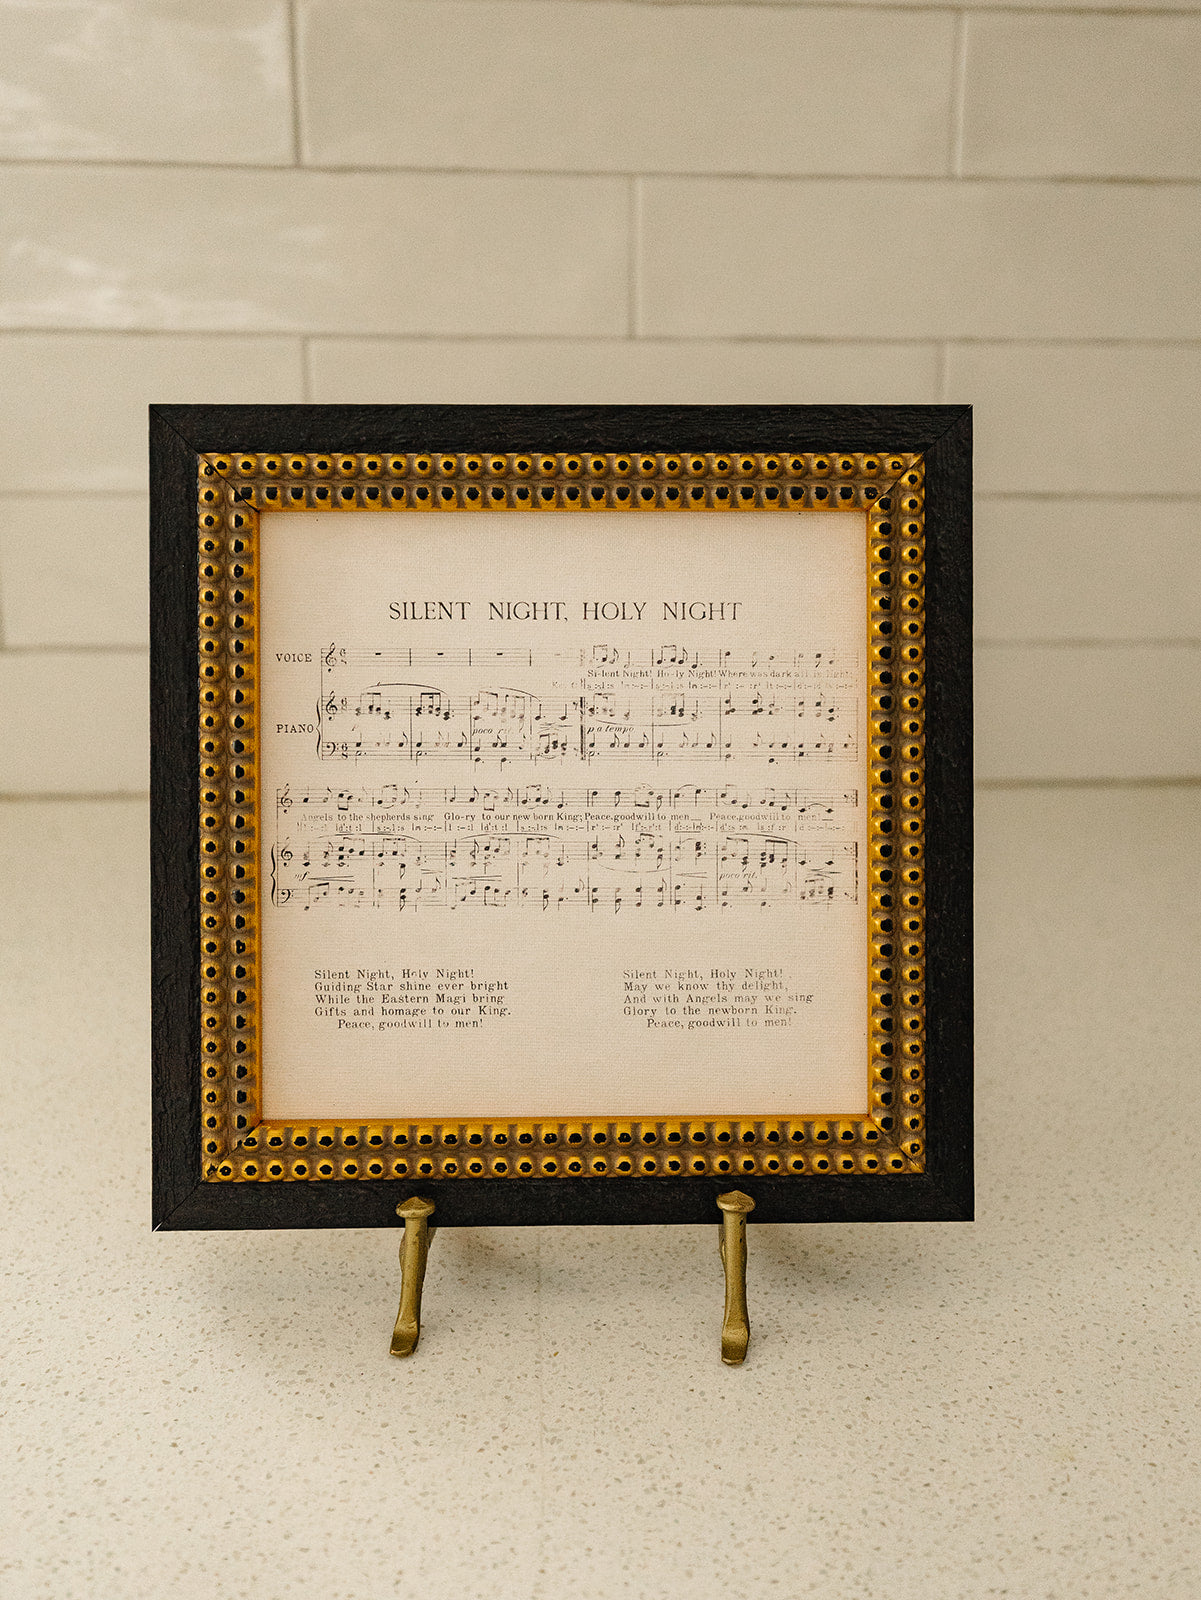 SILENT NIGHT, HOLY NIGHT
VOICE
Si-lent Night! Ho-ly Night! Where was dark all is light;
PIANO
poco rit.
p a tempo
Angels to the shepherds sing Glo-ry to our new born King; Peace, goodwill to men__ Peace, goodwill to men!__
mf
poco rit.
Silent Night, Holy Night!
Guiding Star shine ever bright
While the Eastern Magi bring
Gifts and homage to our King.
Peace, goodwill to men!
Silent Night, Holy Night!
May we know thy delight,
And with Angels may we sing
Glory to the newborn King.
Peace, goodwill to men!